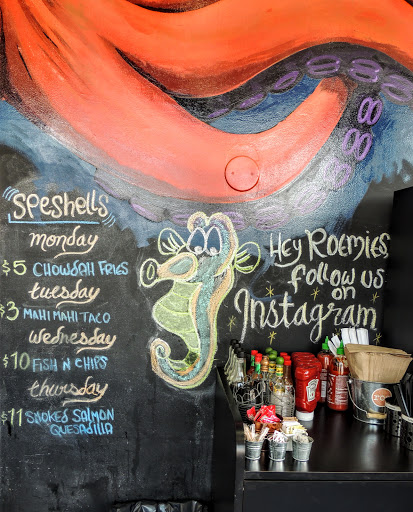 Speshells
monday
$5 Chowdah Fries
tuesday
$3 Mahi Mahi Taco
wednesday
$10 Fish n Chips
thursday
$11 Smoked Salmon
Quesadilla
Hey Roemies,
follow us
on
Instagram